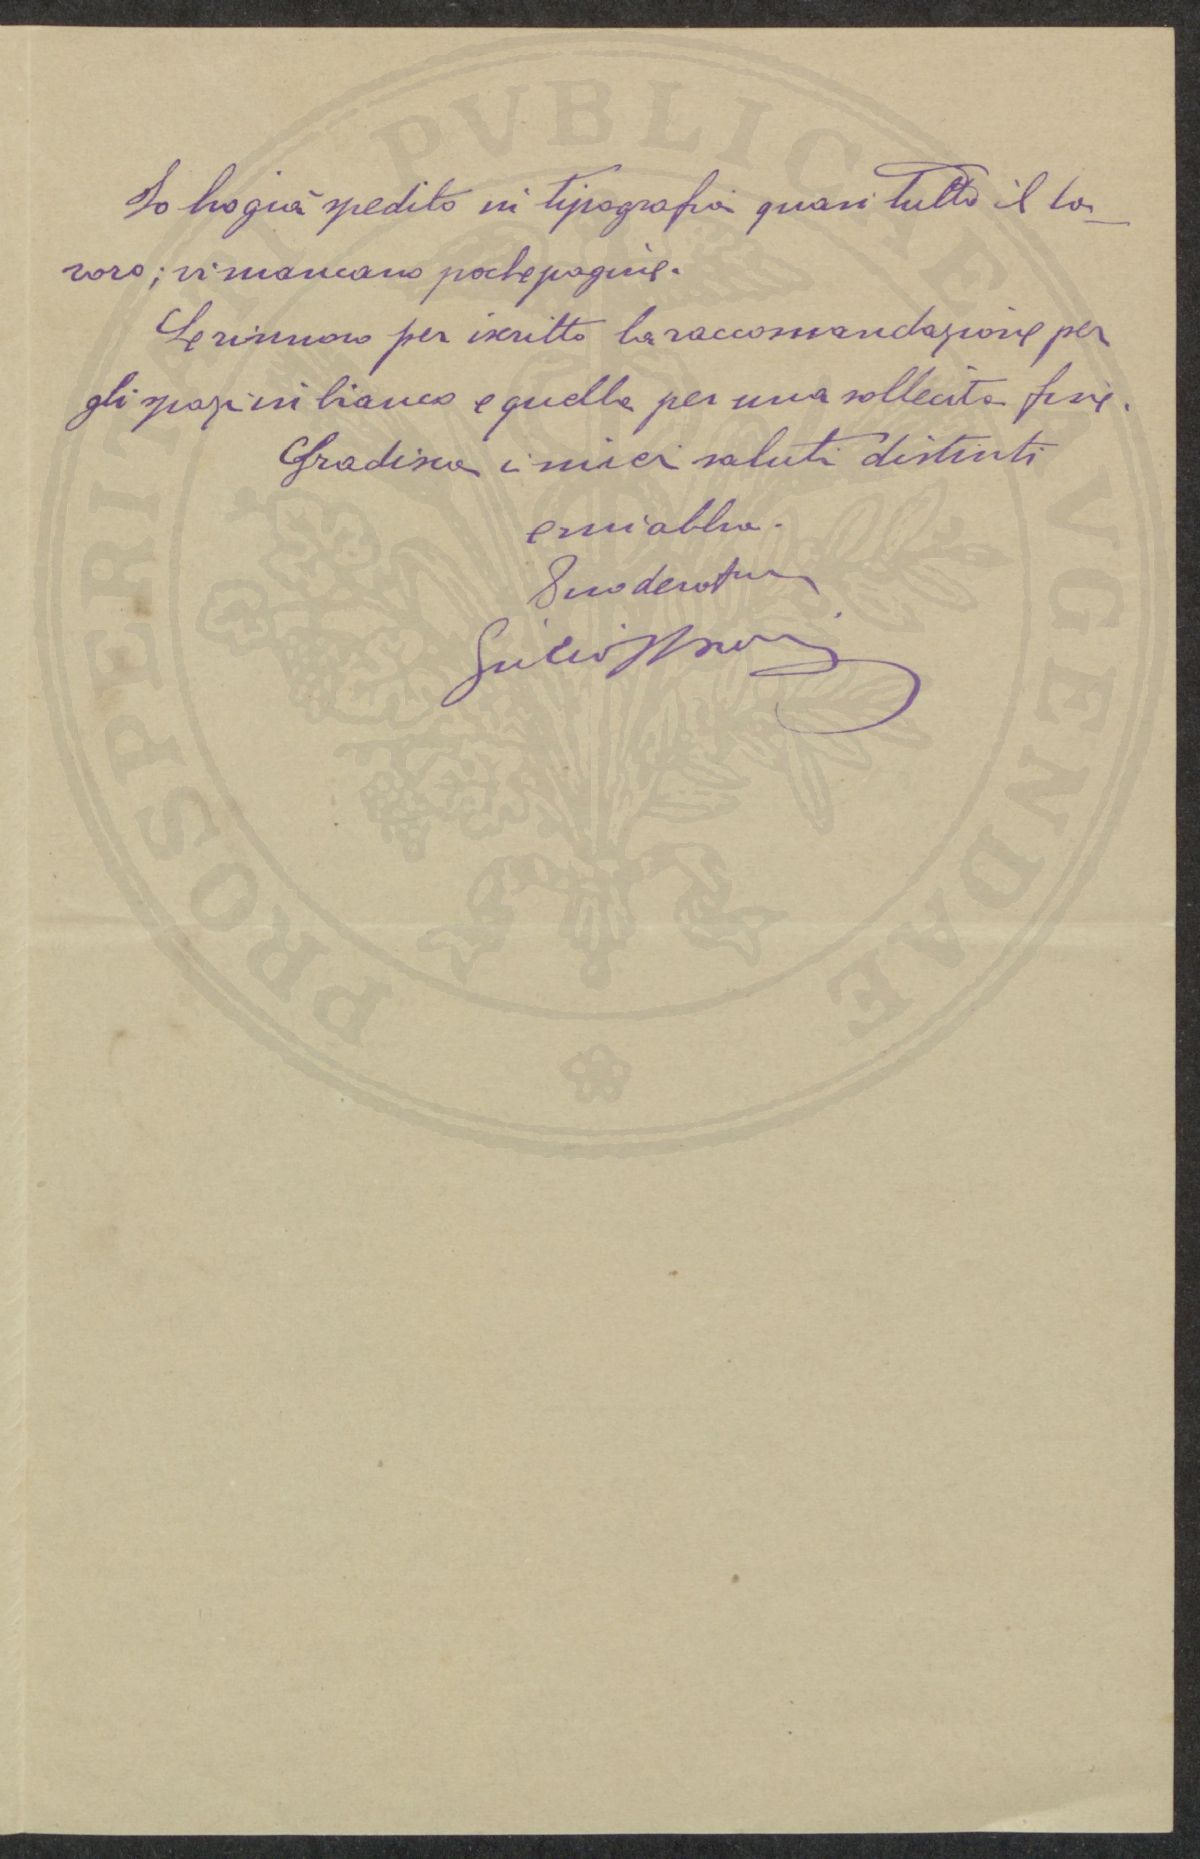 Io ho già spedito in tipografia quasi tutto il la-
voro; vi mancano poche pagine.
Le rinnovo per iscritto la raccomandazione per
gli spazi in bianco e quella per una sollecita fine.
Gradisca i miei saluti distinti
e mi abbia.
Suo devotmo
Giulio
PROSPERITATI PVBLICAE AVGENDAE